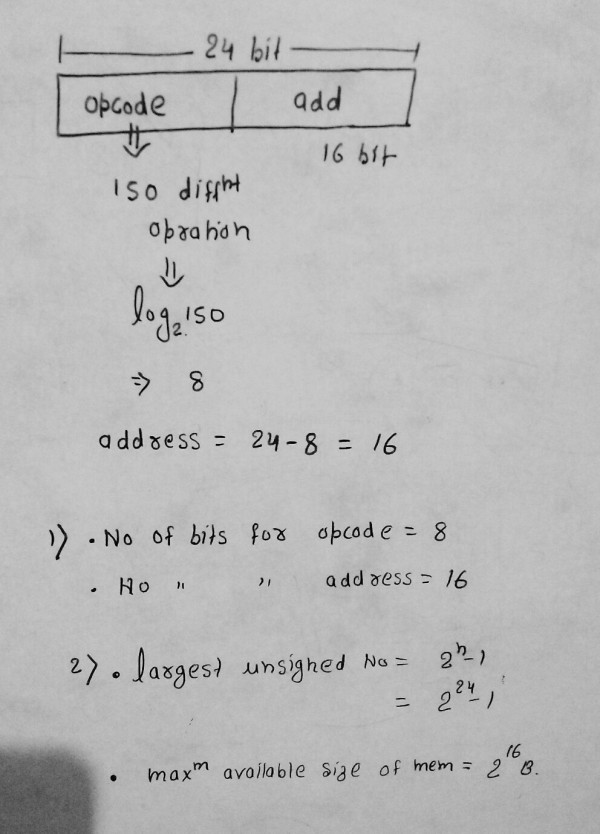 24 bit
opcode add
16 bit
150 diffnt
opration
⇓
log₂150
⇒ 8
address = 24-8 = 16
1) • No of bits for opcode = 8
• No " " address = 16
2) • largest unsigned No = 2ⁿ-1
= 2²⁴-1
• maxᵐ available size of mem = 2¹⁶B.